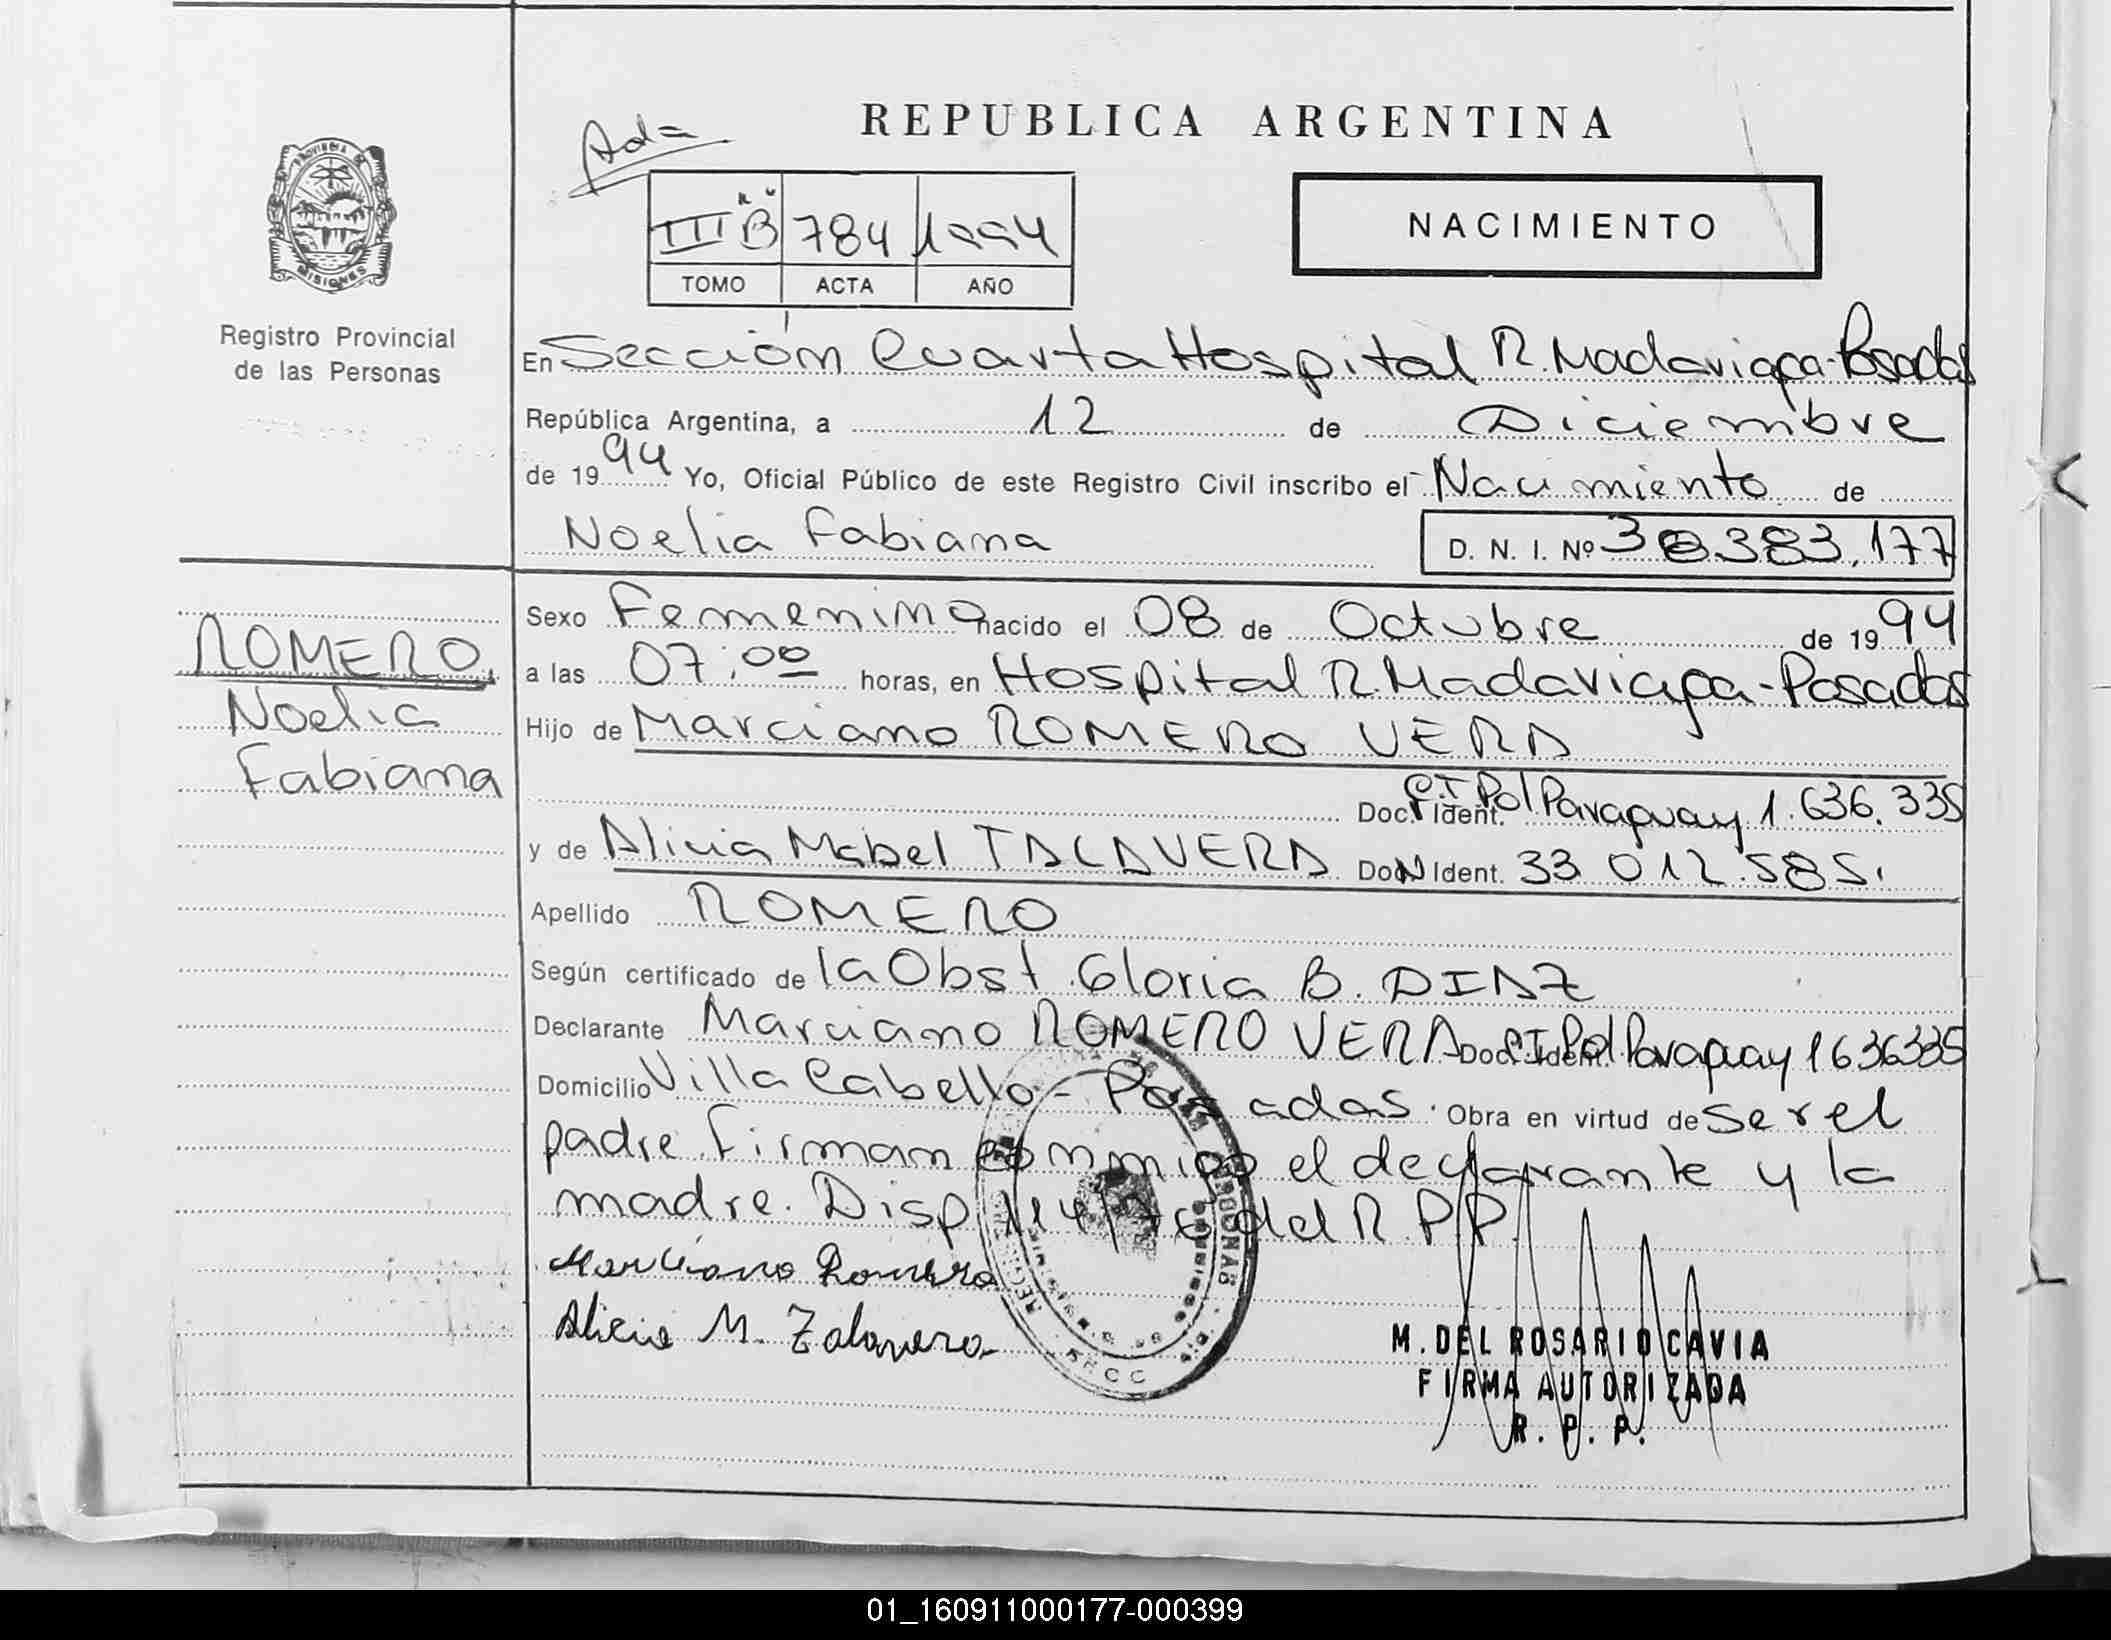 REPUBLICA ARGENTINA
PROVINCIA DE
MISIONES
Registro Provincial
de las Personas
III "B" 784 1994
TOMO ACTA AÑO
NACIMIENTO
En Sección Cuarta Hospital R. Madariaga-Posadas
República Argentina, a 12 de Diciembre
de 1994 Yo, Oficial Público de este Registro Civil inscribo el Nacimiento de
Noelia Fabiana D. N. I. Nº 38.383.177
ROMERO,
Noelia
Fabiana
Sexo Femenino nacido el 08 de Octubre de 1994
a las 07:00 horas, en Hospital R. Madariaga-Posadas
Hijo de Marciano ROMERO VERA
Doc. Ident. C.I Pol Paraguay 1.636.335
y de Alicia Mabel TALAVERA Doc N Ident. 33 012.585.
Apellido ROMERO
Según certificado de la Obst. Gloria B. DIAZ
Declarante Marciano ROMERO VERA Doc. Ident. C I Pol Paraguay 1636335
Domicilio Villa Cabello - Posadas. Obra en virtud de ser el
padre. Firman conmigo el declarante y la
madre. Disp 114/ del R.P.P.
Marciano Romero
Alicia M. Talavera
M. DEL ROSARIO CAVIA
FIRMA AUTORIZADA
R. P. P.
01_160911000177-000399